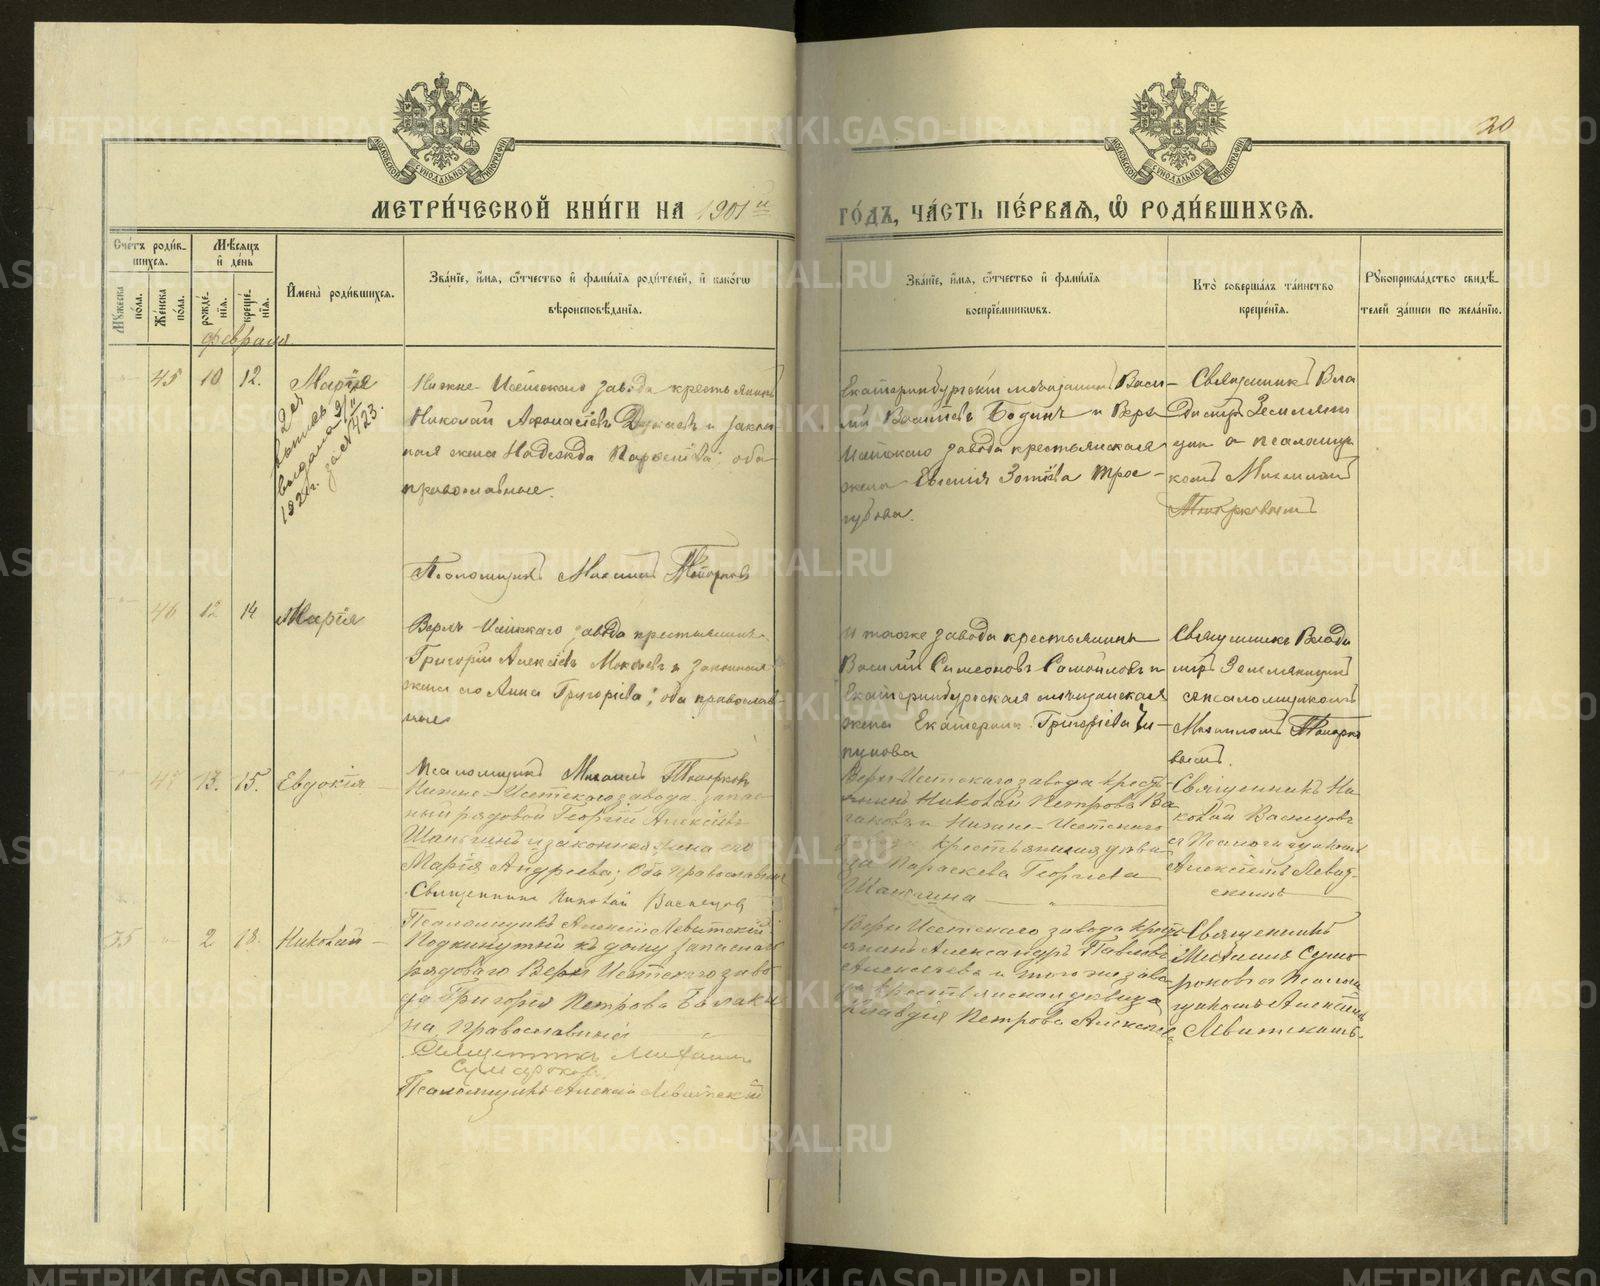 METRIKI.GASO-URAL.RU
20
МОСКОВСКОЙ СѴНОДАЛЬНОЙ ТИПОГРАФІИ
МЕТРИ́ЧЕСКОЙ КНИ́ГИ НА 1901 й
ГО́ДЪ, ЧА́СТЬ ПЕ́РВАЯ, Ѽ РОДИ́ВШИХСЯ.
Сче́тъ роди́в-
шихся.
Мѣ́сяцъ
и҆ де́нь
Му́жеска по́ла.
Же́нска по́ла.
рожде́нїя.
креще́нїя.
И҆мена̀ роди́вшихся.
Зва́нїе, и҆́мя, ѻ҆́тчество и҆ фами́лїя роди́телей, и҆ како́гѡ
вѣроисповѣ́данїя.
Зва́нїе, и҆́мя, ѻ҆́тчество и҆ фами́лїя
воспрїе́мникѡвъ.
Кто̀ соверша́лъ та́инство
креще́нїя.
Рꙋкоприкла́дство свидѣ́-
телей за́писи по жела́нїю.
февраля
45 10 12. Марія
выдана
192 г. за № 423.
Нижне-Исетскаго завода крестьянинъ
Николай Афонасіевъ и закон
ная жена Надежда; оба
православные.
Екатеринбургскій мѣщанинъ Васи-
лій Василіевъ Бодинъ и Верх
Исетскаго завода крестьянская
жена Евгенія Зотиева Тро-
губова.
Священникъ Вла
димиръ Землян
ицин с псаломщи
комъ Михаиломъ
Топорковымъ
Псаломщикъ Михаилъ Топорковъ
46 12 14 Марія
Верхъ-Исетскаго завода крестьянинъ
Григорій Алексіевъ и законная
жена его Анна Григоріева; оба православ-
ные
и тогоже завода крестьянинъ
Василій Симеоновъ Самойловъ и
Екатеринбургская мѣщанская
жена Екатерина Григоріева
Священникъ Влади
міръ Земляницин
с псаломщикомъ
Михаиломъ Топорко
вымъ.
Псаломщикъ Михаилъ Топорковъ
13. 15. Евдокія
Нижне-Исетскаго завода запас-
ный рядовой Георгій Алексіевъ
Шангинъ и законная жена его
Марія Андреева; Оба православные
Священникъ Николай Васнецовъ
Псаломщикъ Алексій Левитскій.
Верх Исетскаго завода крестья-
нинъ Николай Петровъ Ва
гановъ и Нижне-Исетскаго
крестьянская дѣви
ца Параскева Георгіева
Шангина
Священникъ Ни
колай Васнецовъ
с Псаломщикомъ
Алексіемъ Левит-
скимъ
35 2 18. Николай
Подкинутый къ дому запаснаго
рядоваго Верх Исетскаго заво
да Григорія Петрова Балаки
на Православный
Священникъ Михаилъ
Сумароковъ
Псаломщикъ Алексій Левитскій
Верх Исетскаго завода крест
янинъ Александръ Павловъ
Алексѣевъ и того же заво
да крестьянская дѣвица
Клавдія Петрова Алексѣева
Священникъ
Михаилъ Сума
роковъ с Псалом
щикомъ Алексіемъ
Левитскимъ.